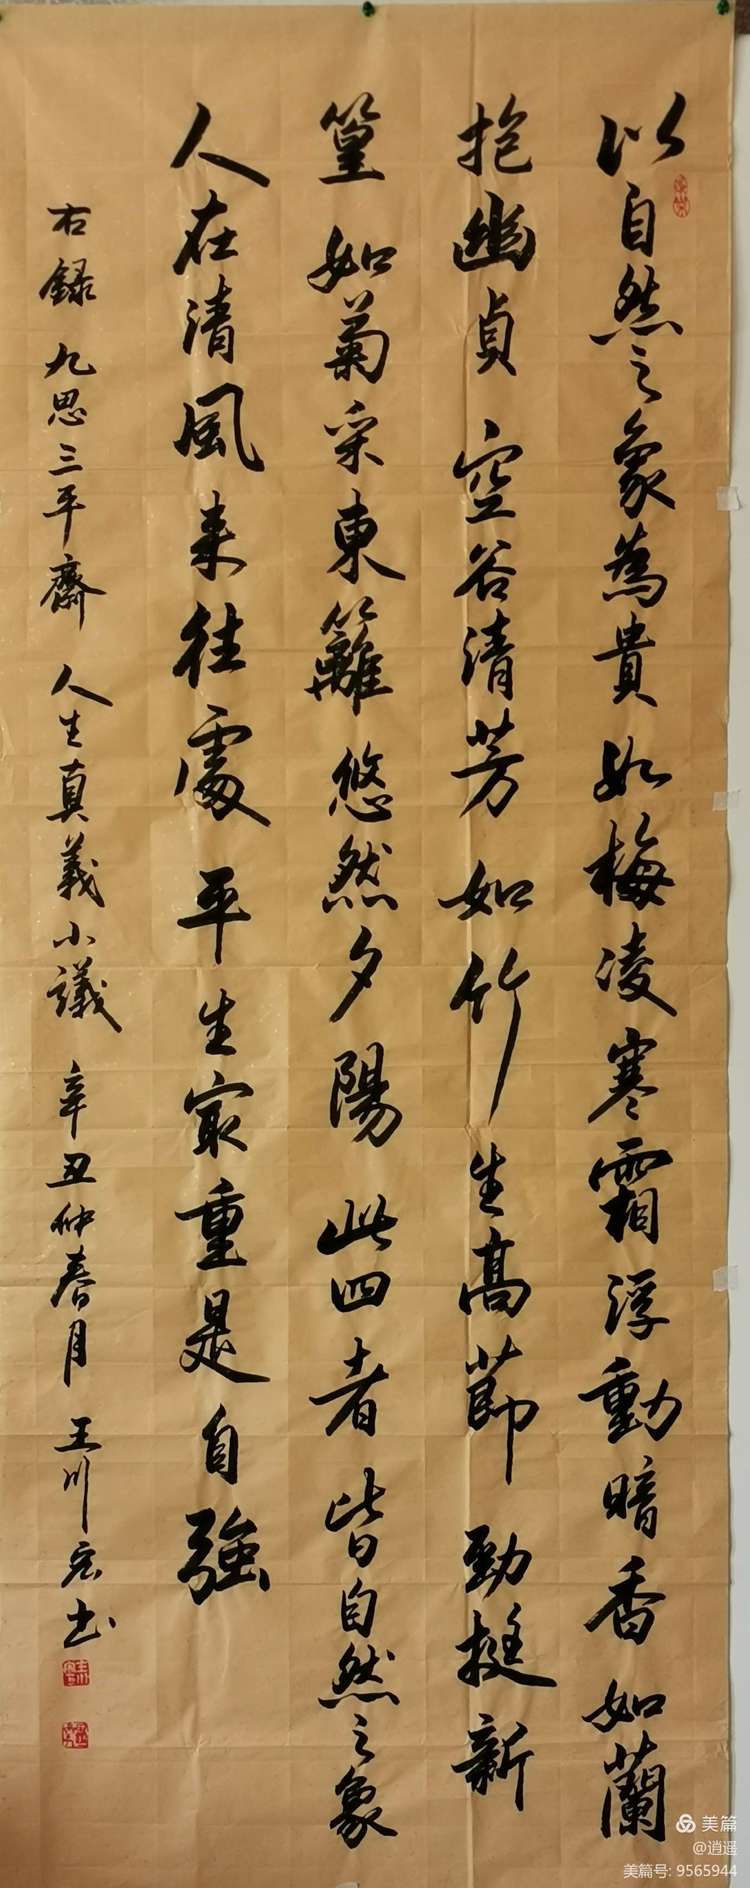 以自然之象為貴如梅凌寒霜浮動暗香如蘭
抱幽貞空谷清芳如竹生高節勁挺新
篁如菊采東籬悠然夕陽此四者皆自然之象
人在清風来往處平生最重是自強
右録九思三平齋人生真義小議辛丑仲春月王川宏书
美篇
@逍遥
美篇号: 9565944